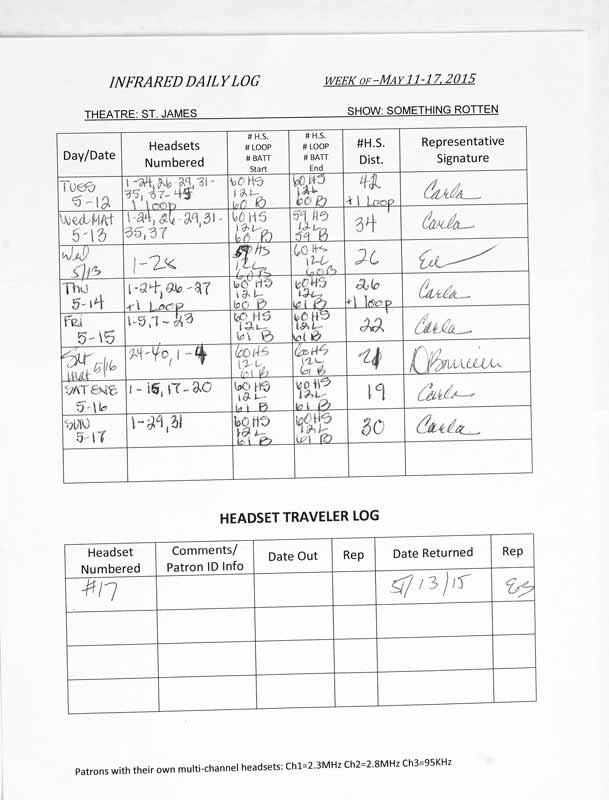 INFRARED DAILY LOG WEEK OF –MAY 11-17, 2015
THEATRE: ST. JAMES SHOW: SOMETHING ROTTEN
Day/Date Headsets Numbered # H.S. # LOOP # BATT Start # H.S. # LOOP # BATT End #H.S. Dist. Representative Signature
TUES 5-12 1-24, 26-29, 31-35, 37-45 1 loop 60 HS 12L 60 B 60 HS 12L 60 B 42 +1 Loop Carla
Wed MAT 5-13 1-24, 26-29, 31-35, 37 60 HS 12L 60 B 59 HS 12L 59 B 34 Carla
Wed 5/13 1-28 59 HS 12L 60B 60 HS 12L 60B 26
Thu 5-14 1-24, 26-27 +1 Loop 60 HS 12L 60 B 60HS 12L 61 B 26 +1 loop Carla
Fri 5-15 1-5, 7-23 60 HS 12L 61 B 60 HS 12L 61 B 22 Carla
Sat Mat 5/16 24-40, 1-4 60HS 12L 61B 60HS 12L 61B 21
SAT EVE 5-16 1-15, 17-20 60 HS 12L 61 B 60 HS 12L 61 B 19 Carla
SUN 5-17 1-29, 31 60HS 12L 61 B 60HS 12L 61 B 30 Carla
HEADSET TRAVELER LOG
Headset Numbered Comments/ Patron ID Info Date Out Rep Date Returned Rep
#17 5/13/15
Patrons with their own multi-channel headsets: Ch1=2.3MHz Ch2=2.8MHz Ch3=95KHz